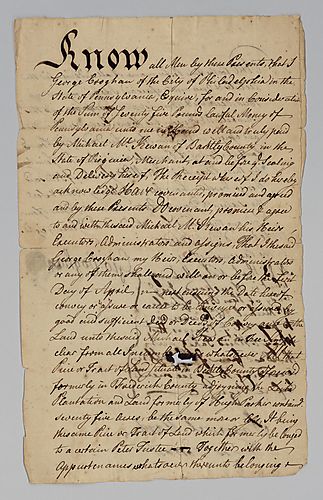 Know all Men by these Presents, that I
George Croghan of the City of Philadelphia in the
State of Pennsylvania, Esquire, for and in Consideration
of the Sum of Seventy five Pounds Lawful Money of
Pennsylvania unto me in hand well and truly paid
by Michael Mc Kewan of Berkley County in the
State of Virginia Merchant, at and before Sealing
and Delivery hereof The Receipt whereof I do hereby
acknowledge Have covenanted, promised and agreed
and by these Presents Do covenant, promise & agree
to and with the said Michael Mc Kewan his Heirs
Executors, Administrators and Assigns, That I the said
George Croghan my Heirs, Executors, Administrators
or any of them shall and will on or before the first
Day of April next the Date hereof
convey or assure or cause to be
good and sufficient Deed or Deeds
Land unto the said Michael
clear from all whatsoever all that
Piece or Tract of Land situate in Berkley County
formerly in Frederick County adjoining the
Plantation and Land formerly of
seventy five Acres, be the same more or less It being
the same Piece or Tract of Land which formerly belonged
to a certain Peter Together with the
Appurtenances whatsoever thereunto belonging &